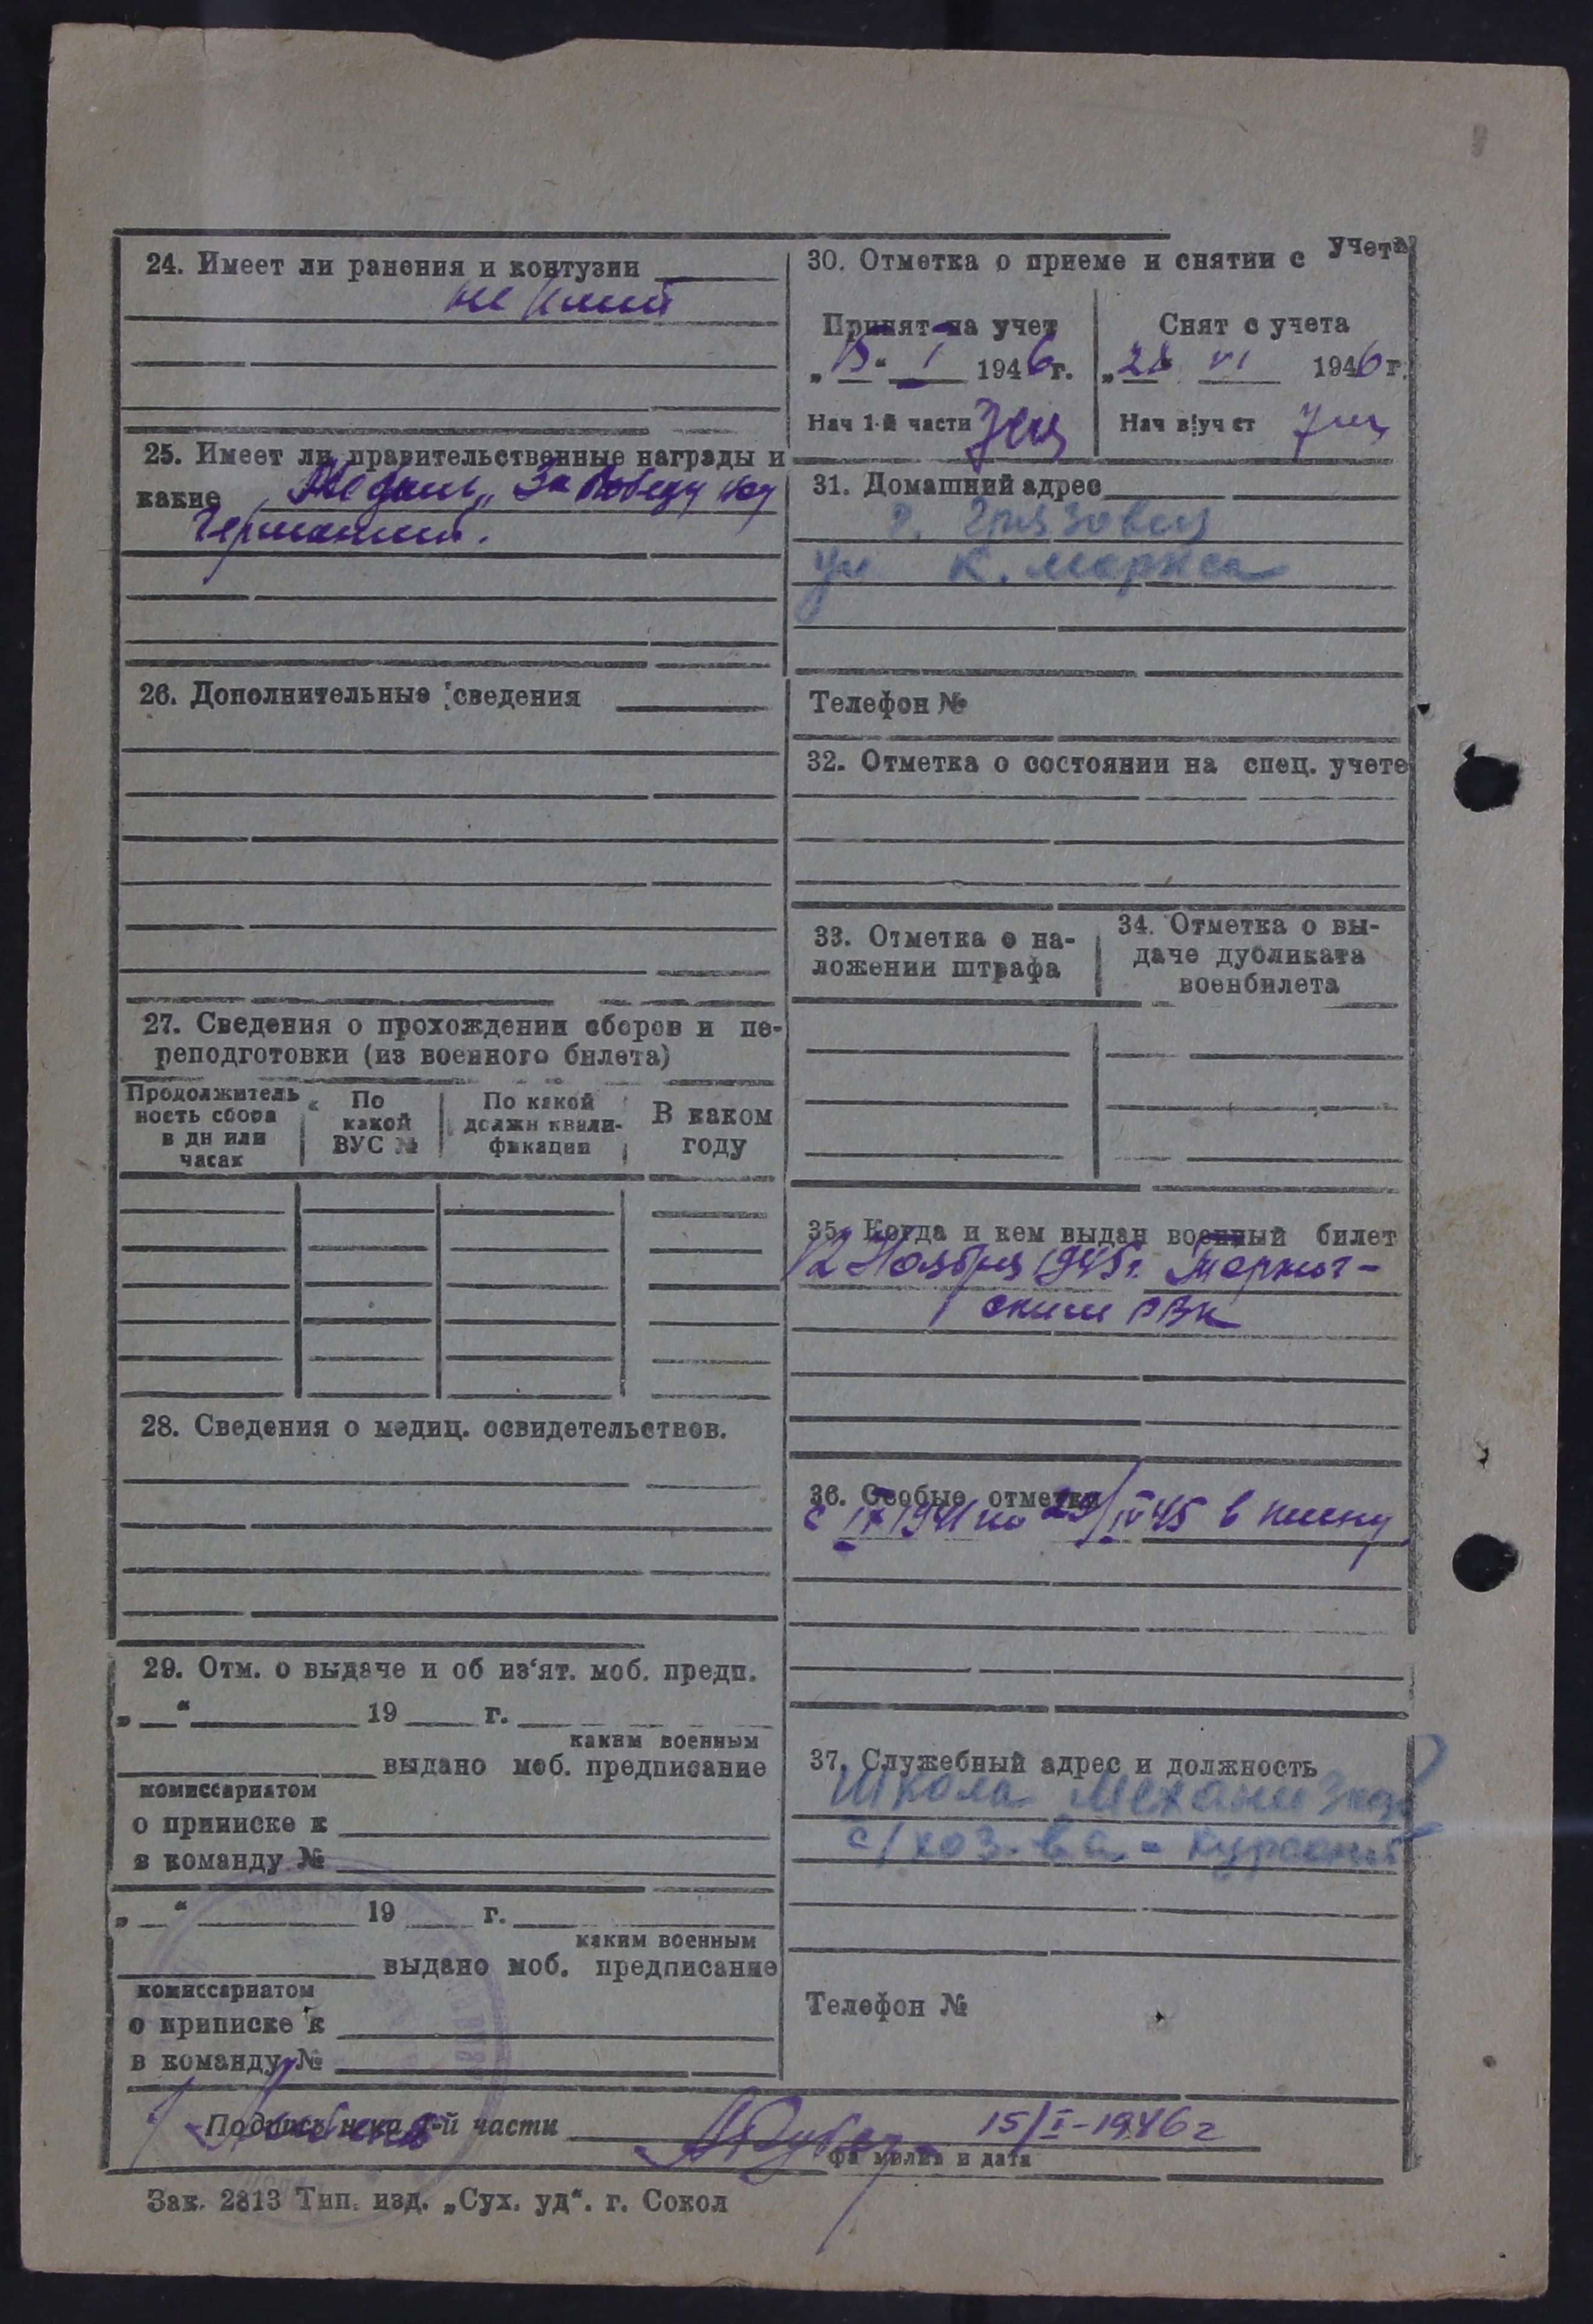 24. Имеет ли ранения и контузии
не имеет
25. Имеет ли правительственные награды и
какие Медаль „За Победу над
Германией.
26. Дополнительные сведения
27. Сведения о прохождении сборов и пе-
реподготовки (из военного билета)
Продолжитель
ность сбора
в дн или
часах
По
какой
ВУС №
По какой
должн квали-
фикации
В каком
году
28. Сведения о медиц. освидетельствов.
29. Отм. о выдаче и об из‘ят. моб. предп.
„ “ 19 г.
каким военным
выдано моб. предписание
комиссариатом
о приписке к
в команду №
„ “ 19 г.
каким военным
выдано моб. предписание
комиссариатом
о приписке к
в команду №
30. Отметка о приеме и снятии с учета
Принят на учет
„15“ I 1946г.
Нач 1-й части
Снят с учета
„28 VI 1946г.
Нач в|уч ст
31. Домашний адрес
г. Грязовец
ул К. Маркса
Телефон №
32. Отметка о состоянии на спец. учете
33. Отметка о на-
ложении штрафа
34. Отметка о вы-
даче дубликата
военбилета
35. Когда и кем выдан военный билет
12 Ноября 1945г. Тарног-
ским РВК
36. Особые отметки
с IX 1941 по 29/IV 45 в плену
37. Служебный адрес и должность
Школа Механизац
с/хоз-ва - курсант
Телефон №
Подпись нача 1-й части 15/I-1946г
фамилия и дата
Зак. 2813 Тип. изд. „Сух. уд“. г. Сокол